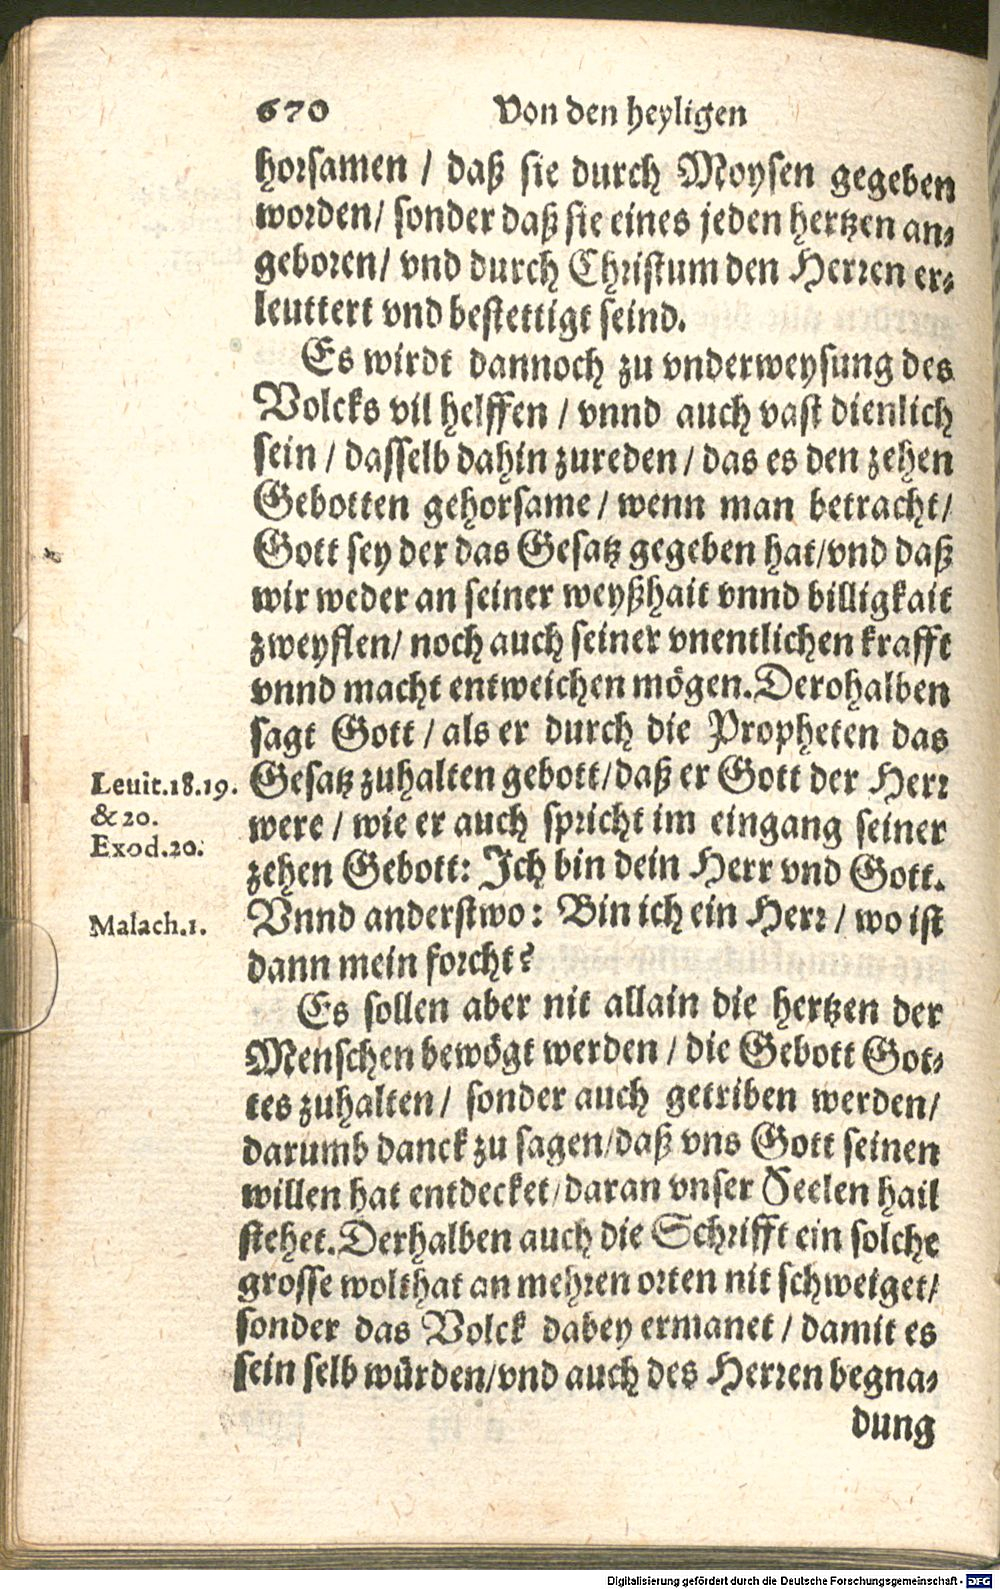 670 Von den heyligen
horsamen / daß sie durch Moysen gegeben
worden/ sonder daß sie eines jeden hertzen an-
geboren/ vnd durch Christum den Herren er-
leuttert vnd bestettigt seind.
Es wirdt dannoch zu vnderweysung des
Volcks vil helffen / vnnd auch vast dienlich
sein / dasselb dahin zureden / das es den zehen
Gebotten gehorsame / wenn man betracht/
Gott sey der das Gesatz gegeben hat/vnd daß
wir weder an seiner weyßhait vnnd billigkait
zweyflen/ noch auch seiner vnentlichen krafft
vnnd macht entweichen mögen. Derohalben
sagt Gott / als er durch die Propheten das
Leuit.18.19. Gesatz zuhalten gebott/daß er Gott der Herr
& 20. were / wie er auch spricht im eingang seiner
Exod.20. zehen Gebott: Ich bin dein Herr vnd Gott.
Malach.1. Vnnd anderstwo: Bin ich ein Herr / wo ist
dann mein forcht?
Es sollen aber nit allain die hertzen der
Menschen bewögt werden / die Gebott Got-
tes zuhalten/ sonder auch getriben werden/
darumb danck zu sagen/daß vns Gott seinen
willen hat entdecket/daran vnser Seelen hail
stehet. Derhalben auch die Schrifft ein solche
grosse wolthat an mehren orten nit schweiget/
sonder das Volck dabey ermanet / damit es
sein selb würden/vnd auch des Herren begna-
dung
Digitalisierung gefördert durch die Deutsche Forschungsgemeinschaft - DFG